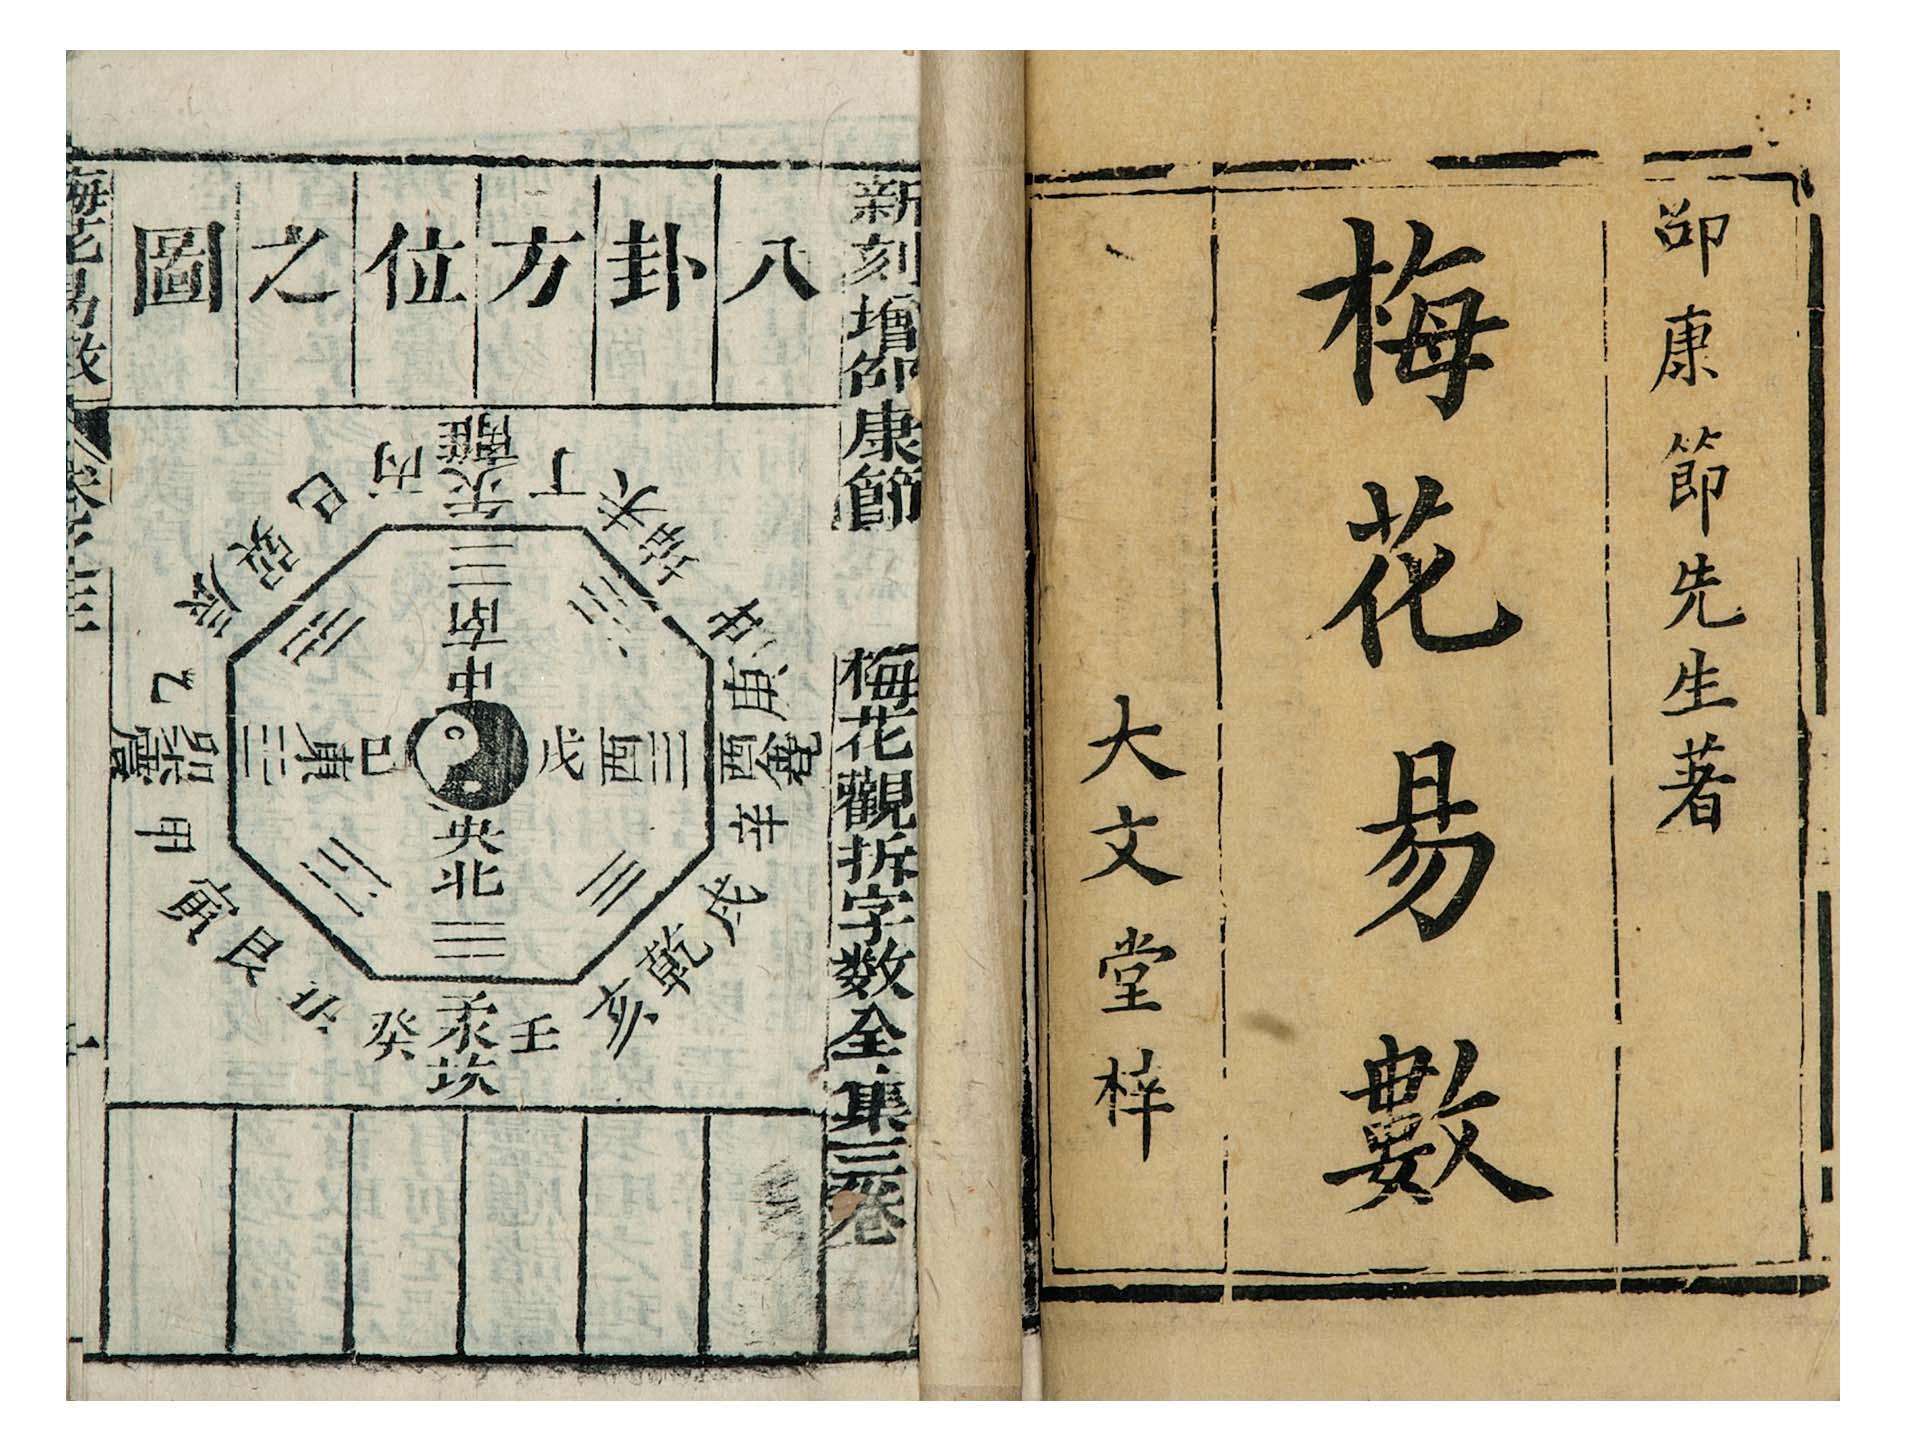 邵康節先生著
梅花易數
大文堂梓
新刻增邵康節　梅花觀拆字數全集三卷
八卦方位之圖
離
丙 火 丁
巳 午 未
巽 坤
辰 申
南
中
乙 庚
震 卯 東 巳 戊 酉 酉 兌
甲 辛
央
北
寅 戌
艮 乾
丑 亥
癸 壬
坎
梅花易數